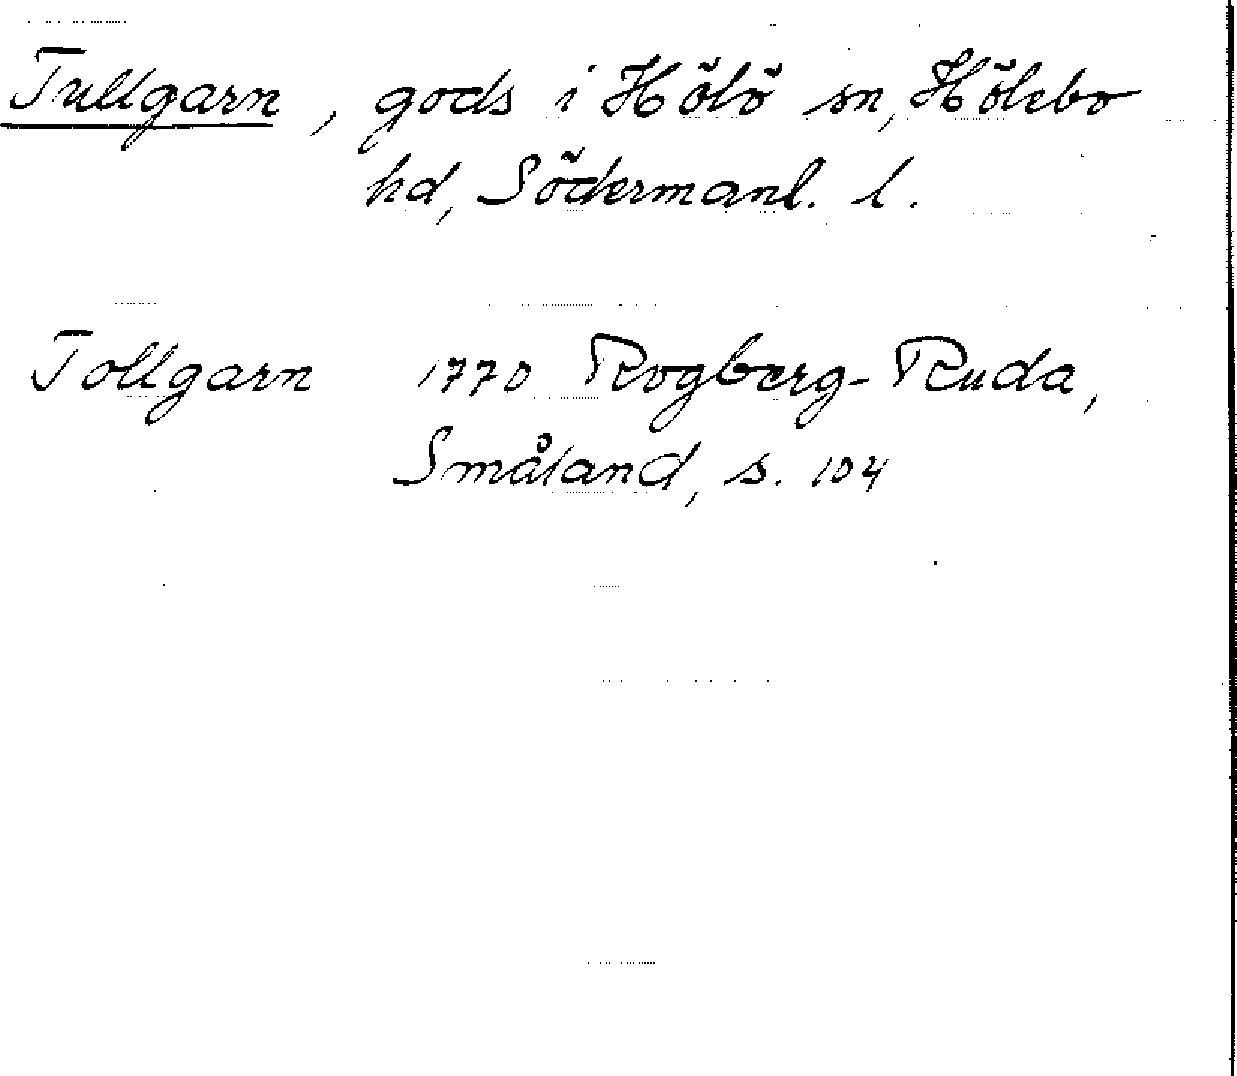 Tullgarn, gods i Hölö sn, Hölebo
hd, Södermanl. l.
Tollgarn 1770 Rogberg-Ruda,
Småland, s. 104